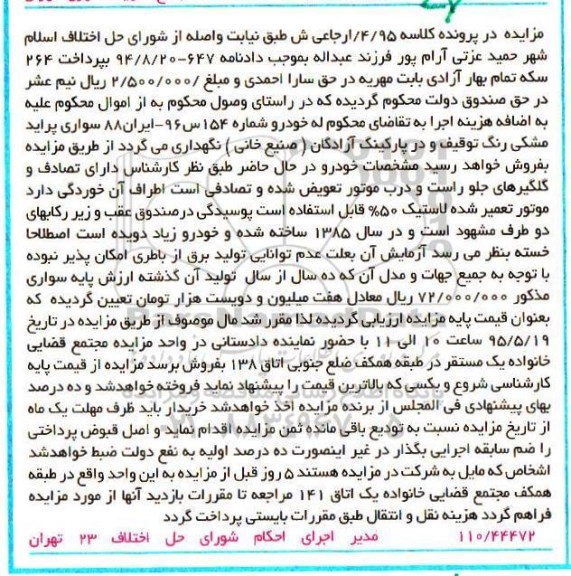 مزایده در پرونده کلاسه ۴/۹۵/ارجاعی ش طبق نیابت واصله از شورای حل اختلاف اسلام
شهر حمید عزتی آرام پور فرزند عبداله بموجب دادنامه ۶۴۷-۹۴/۸/۲۰ بپرداخت ۲۶۴
سکه تمام بهار آزادی بابت مهریه در حق سارا احمدی و مبلغ /۲/۵۰۰/۰۰۰ ریال نیم عشر
در حق صندوق دولت محکوم گردیده که در راستای وصول محکوم به از اموال محکوم علیه
به اضافه هزینه اجرا به تقاضای محکوم له خودرو شماره ۱۵۴س۹۶-ایران۸۸ سواری پراید
مشکی رنگ توقیف و در پارکینک آزادگان ( صنیع خانی ) نگهداری می گردد از طریق مزایده
بفروش خواهد رسید مشخصات خودرو در حال حاضر طبق نظر کارشناس دارای تصادف و
گلگیرهای جلو راست و درب موتور تعویض شده و تصادفی است اطراف آن خوردگی دارد
موتور تعمیر شده لاستیک ۵۰% قابل استفاده است پوسیدگی درصندوق عقب و زیر رکابهای
دو طرف مشهود است و در سال ۱۳۸۵ ساخته شده و خودرو زیاد دویده است اصطلاحا
خسته بنظر می رسد آزمایش آن بعلت عدم توانایی تولید برق از باطری امکان پذیر نبوده
با توجه به جمیع جهات و مدل آن که ده سال از سال تولید آن گذشته ارزش پایه سواری
مذکور ۷۲/۰۰۰/۰۰۰ ریال معادل هفت میلیون و دویست هزار تومان تعیین گردیده که
بعنوان قیمت پایه مزایده ارزیابی گردیده لذا مقرر شد مال موضوف از طریق مزایده در تاریخ
۹۵/۵/۱۹ ساعت ۱۰ الی ۱۱ با حضور نماینده دادستانی در واحد مزایده مجتمع قضایی
خانواده یک مستقر در طبقه همکف ضلع جنوبی اتاق ۱۳۸ بفروش برسد مزایده از قیمت پایه
کارشناسی شروع و بکسی که بالاترین قیمت را پیشنهاد نماید فروخته خواهدشد و ده درصد
بهای پیشنهادی فی المجلس از برنده مزایده اخذ خواهدشد خریدار باید ظرف مهلت یک ماه
از تاریخ مزایده نسبت به تودیع باقی مانده ثمن مزایده اقدام نماید و اصل قبوض پرداختی
را ضم سابقه اجرایی بگذار در غیر اینصورت ده درصد اولیه به نفع دولت ضبط خواهدشد
اشخاص که مایل به شرکت در مزایده هستند ۵ روز قبل از مزایده به این واحد واقع در طبقه
همکف مجتمع قضایی خانواده یک اتاق ۱۴۱ مراجعه تا مقررات بازدید آنها از مورد مزایده
فراهم گردد هزینه نقل و انتقال طبق مقررات بایستی پرداخت گردد
۱۱۰/۴۴۴۷۲ مدیر اجرای احکام شورای حل اختلاف ۲۳ تهران